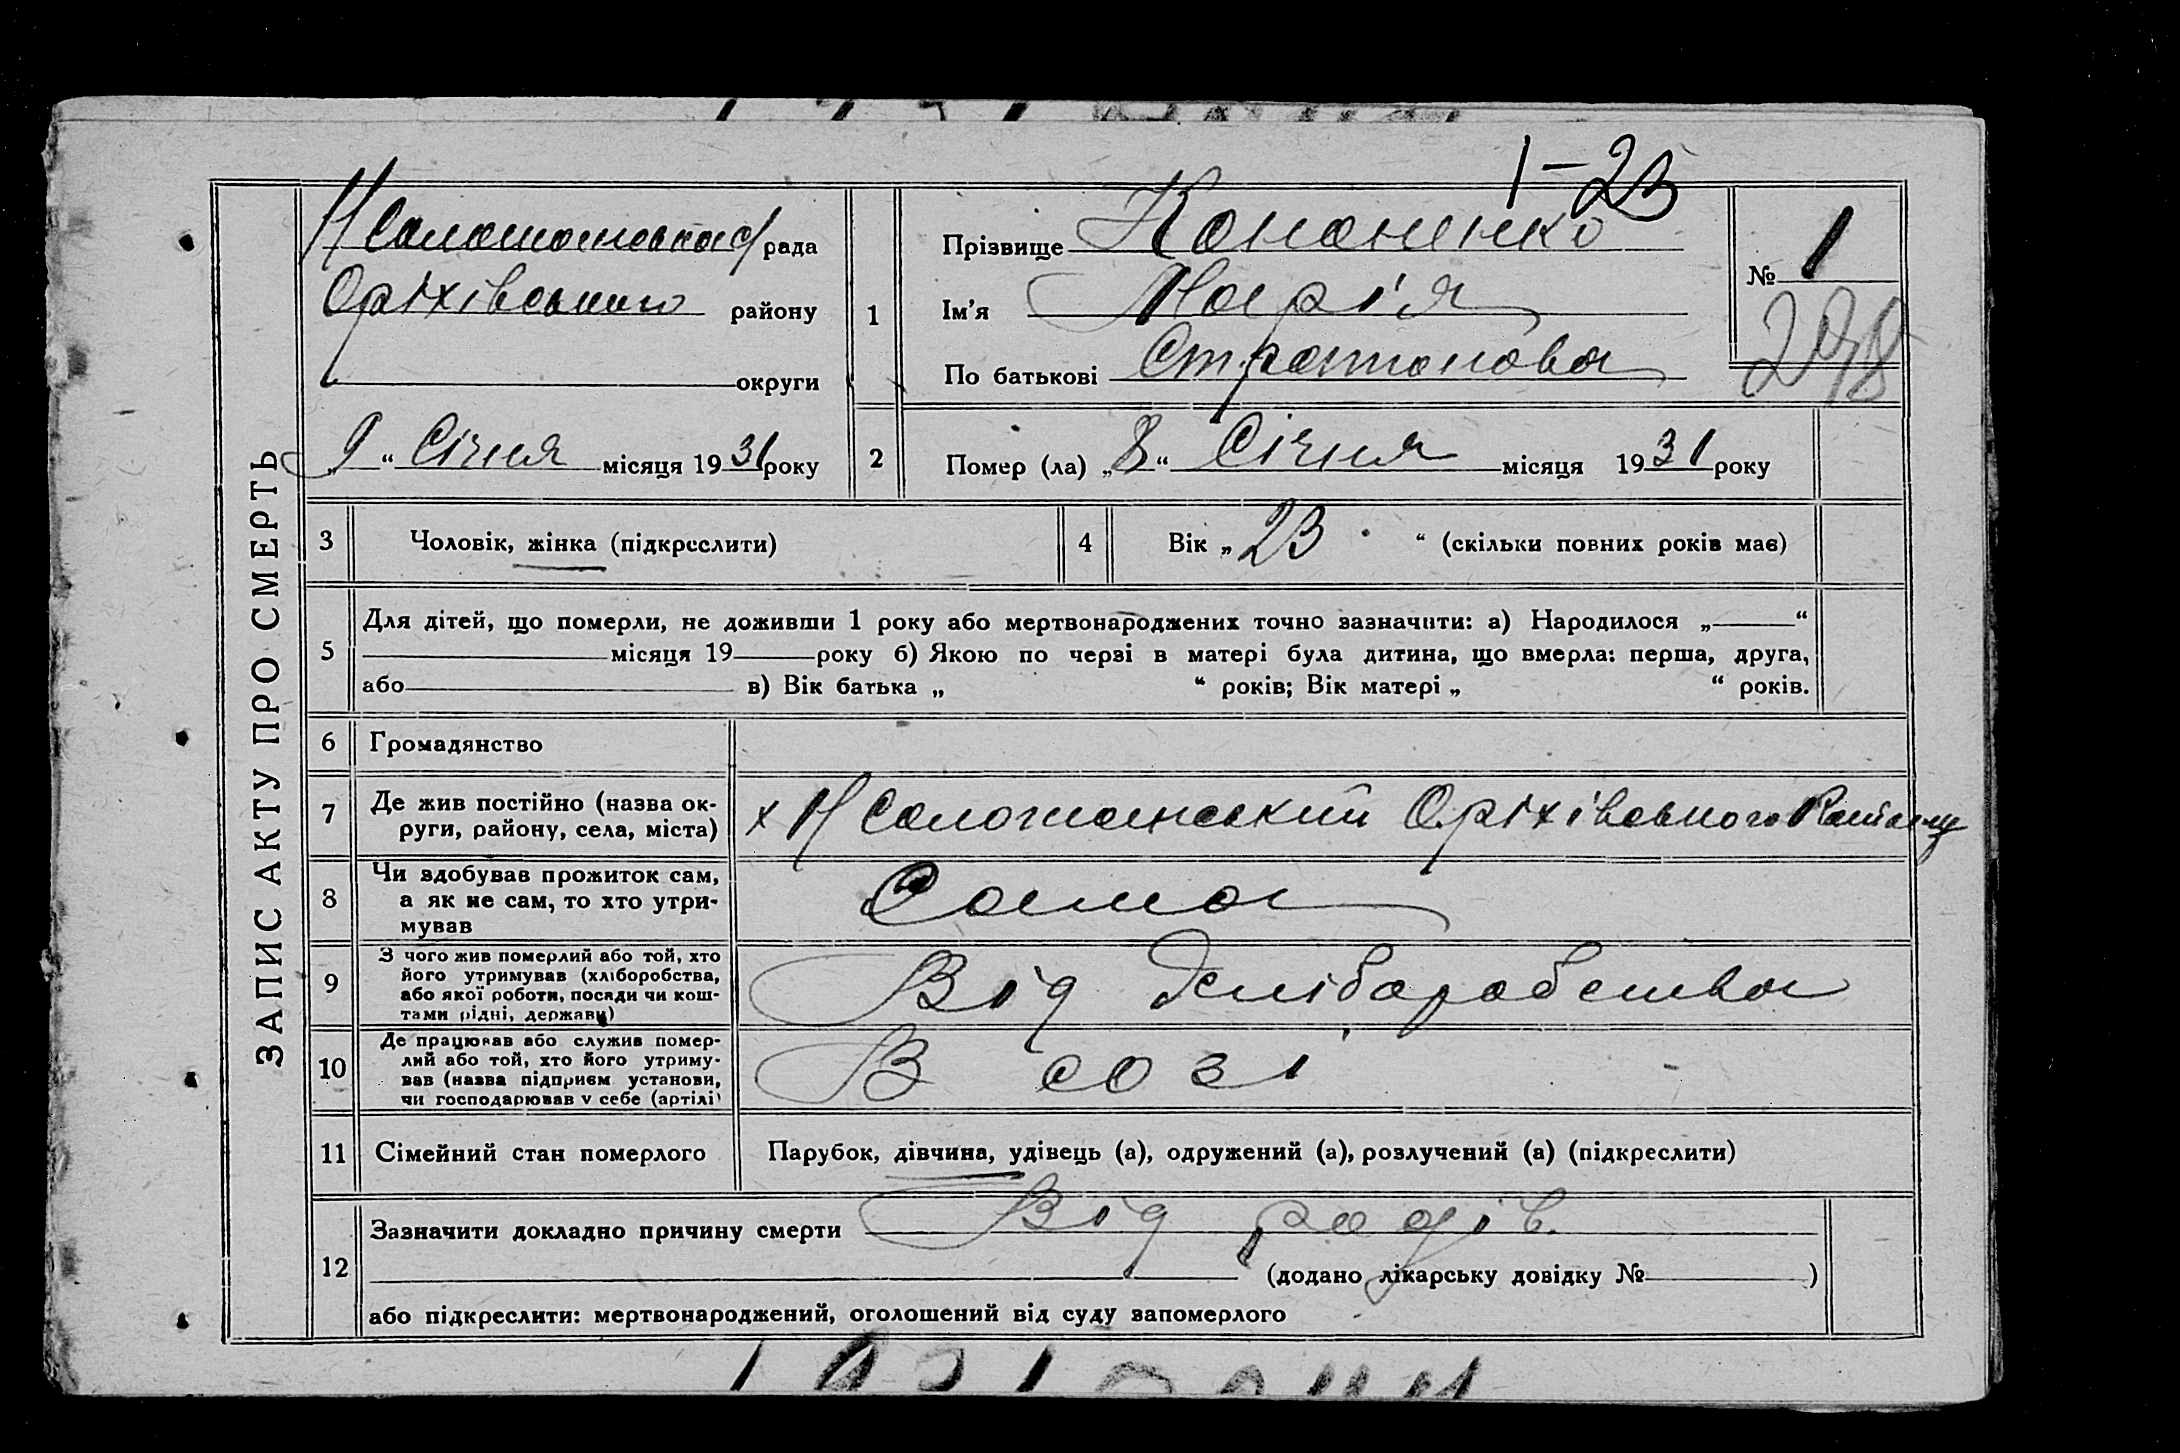 1-23
ЗАПИС АКТУ ПРО СМЕРТЬ
рада
Оріхівського району
округи
„9“ Січня місяця 1931 року
1
Прізвище Кононенко
Ім'я Марія
По батькові Стратонова
№ 1
298
2
Помер (ла) „8“ Січня місяця 1931 року
3
Чоловік, жінка (підкреслити)
4
Вік „23“ (скільки повних років має)
5
Для дітей, що померли, не доживши 1 року або мертвонароджених точно зазначити: а) Народилося „ “
місяця 19 року б) Якою по черзі в матері була дитина, що вмерла: перша, друга,
або в) Вік батька „ “ років; Вік матері „ “ років.
6
Громадянство
7
Де жив постійно (назва ок-
руги, району, села, міста)
х Н Солошанський Оріхівського Району
8
Чи здобував прожиток сам,
а як не сам, то хто утри-
мував
Сама
9
З чого жив померлий або той, хто
його утримував (хліборобства,
або якої роботи, посади чи кош-
тами рідні, держави)
Від хліборобства
10
Де працював або служив помер-
лий або той, хто його утриму-
вав (назва підприєм. установи,
чи господарював у себе (артілі)
В созі
11
Сімейний стан померлого
Парубок, дівчина, удівець (а), одружений (а), розлучений (а) (підкреслити)
12
Зазначити докладно причину смерти Від родів.
(додано лікарську довідку № )
або підкреслити: мертвонароджений, оголошений від суду запомерлого